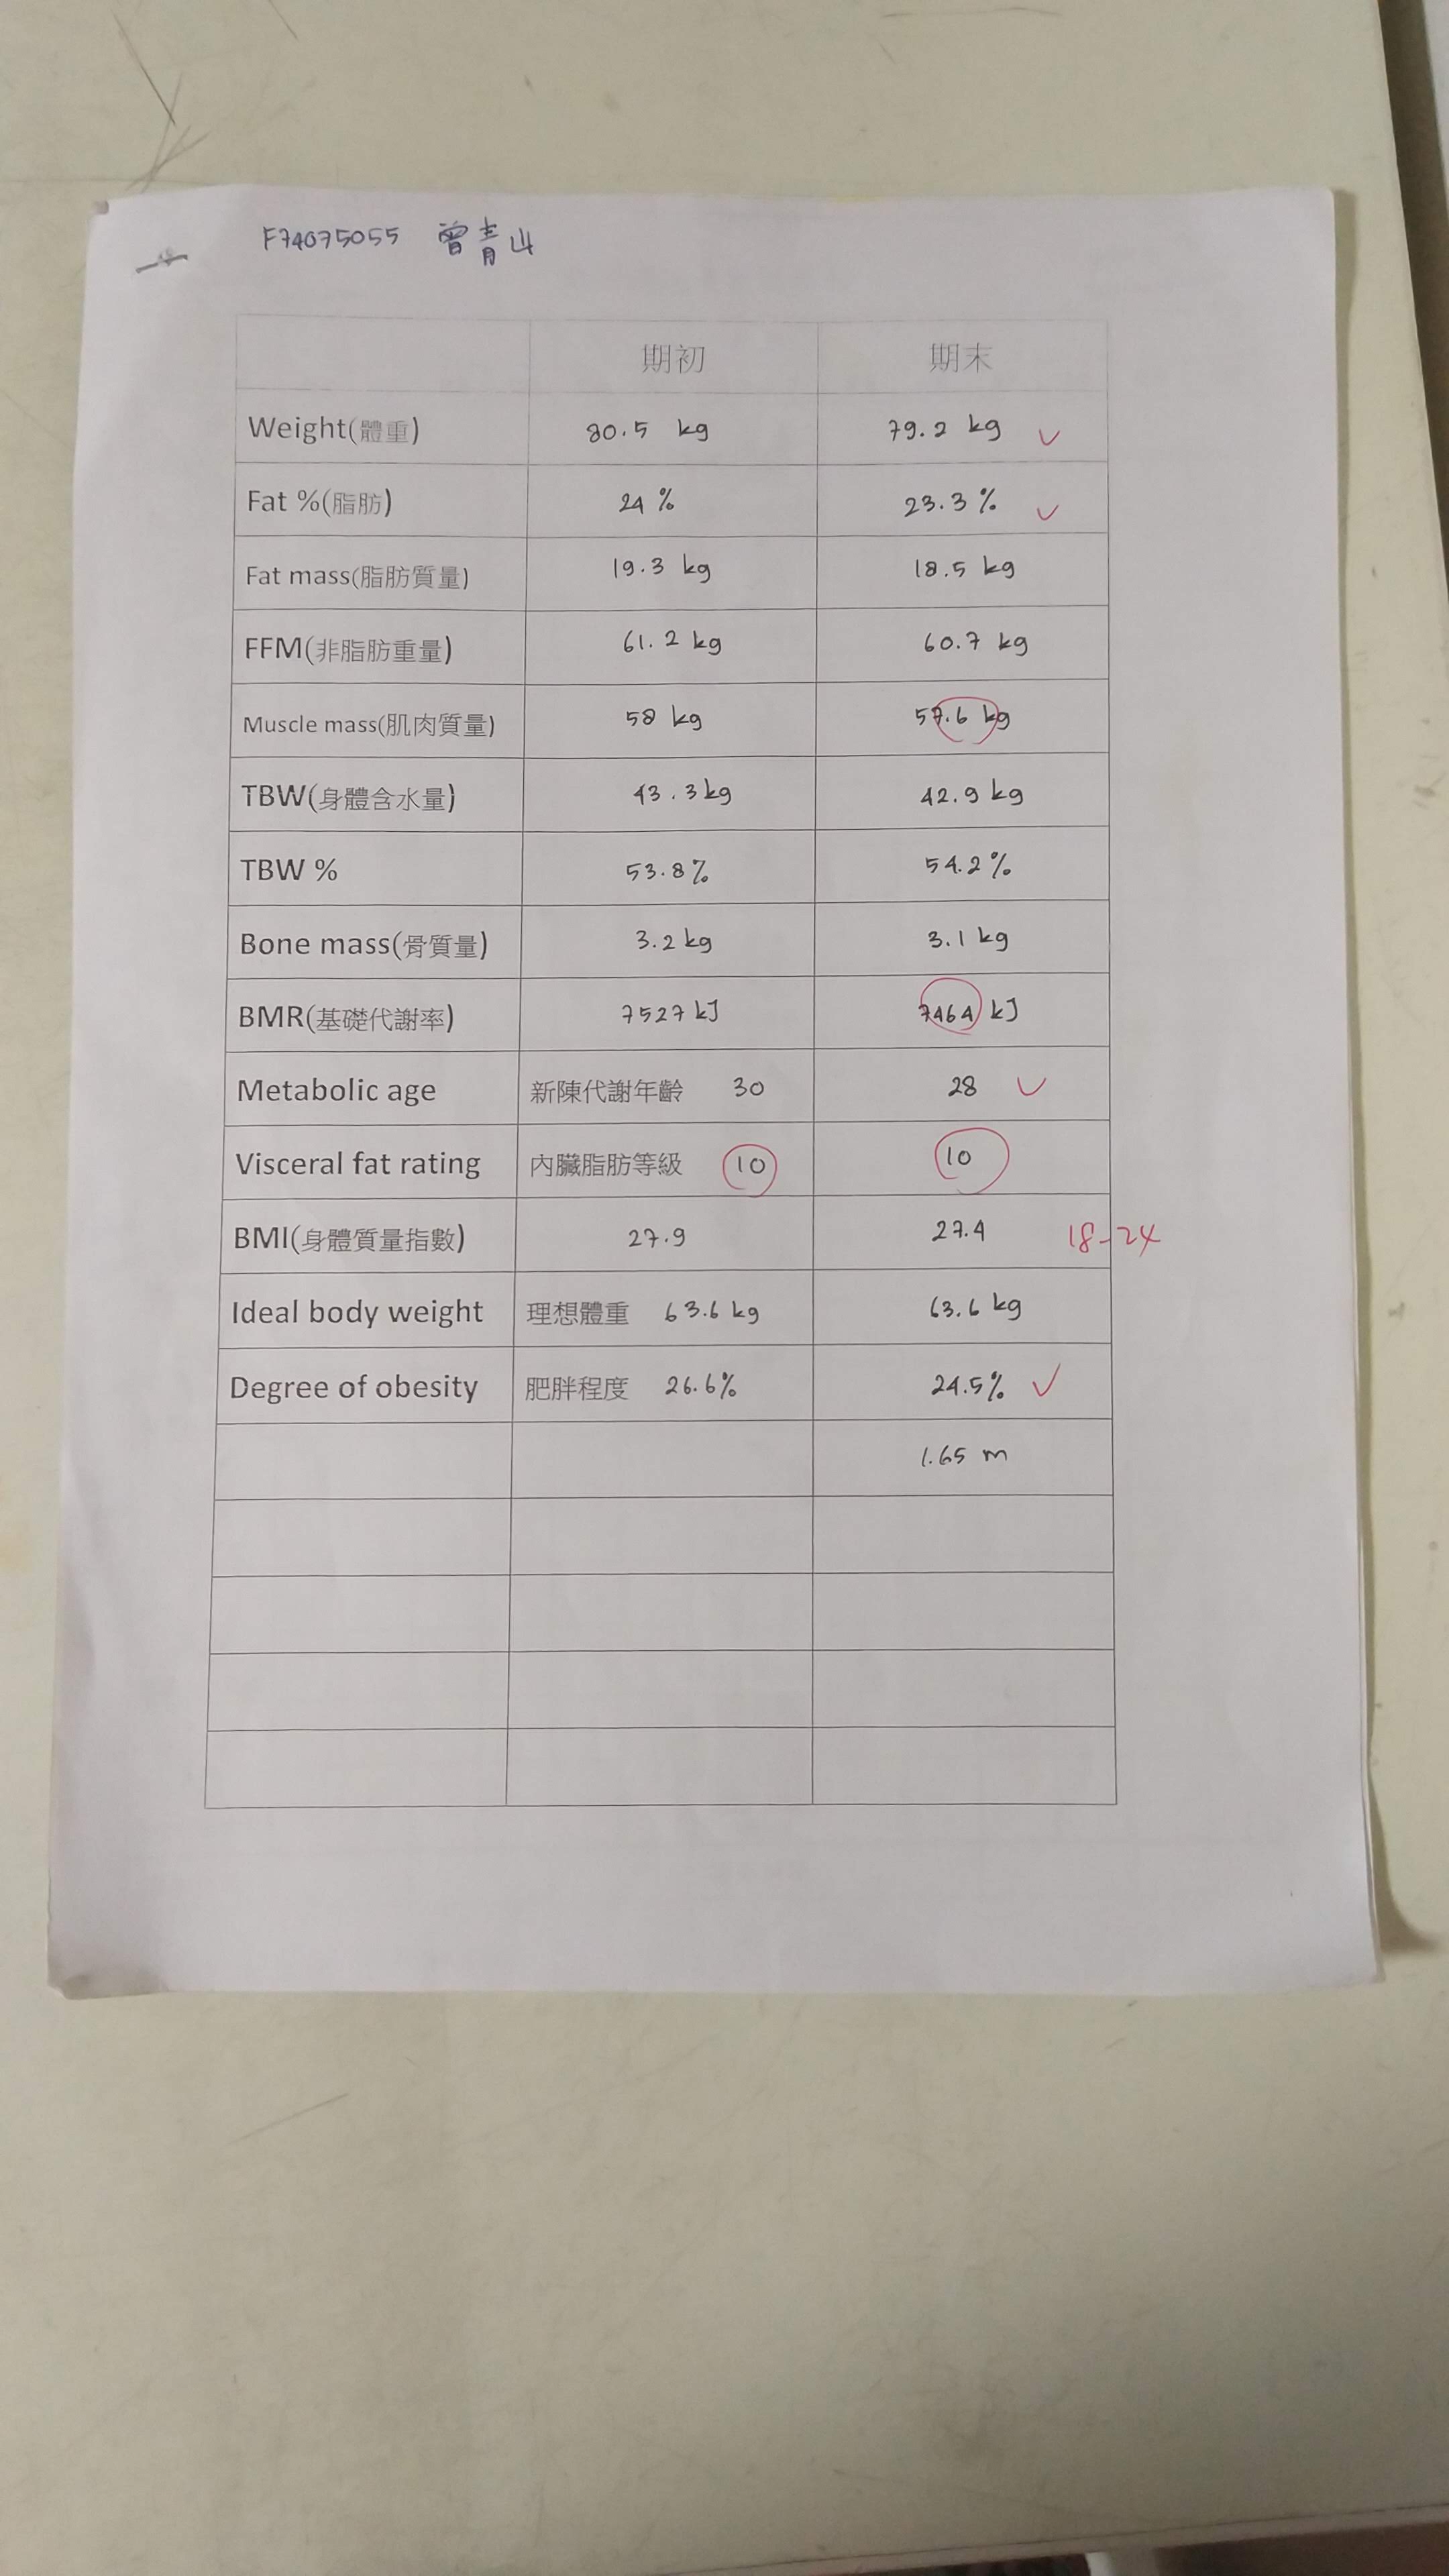 F74075055 曾青山
期初 期末
Weight(體重) 80.5 kg 79.2 kg ✓
Fat %(脂肪) 24 % 23.3 % ✓
Fat mass(脂肪質量) 19.3 kg 18.5 kg
FFM(非脂肪重量) 61.2 kg 60.7 kg
Muscle mass(肌肉質量) 58 kg 57.6 kg
TBW(身體含水量) 43.3 kg 42.9 kg
TBW % 53.8% 54.2%
Bone mass(骨質量) 3.2 kg 3.1 kg
BMR(基礎代謝率) 7527 kJ 7464 kJ
Metabolic age 新陳代謝年齡 30 28 ✓
Visceral fat rating 內臟脂肪等級 10 10
BMI(身體質量指數) 27.9 27.4 18-24
Ideal body weight 理想體重 63.6 kg 63.6 kg
Degree of obesity 肥胖程度 26.6% 24.5% ✓
1.65 m